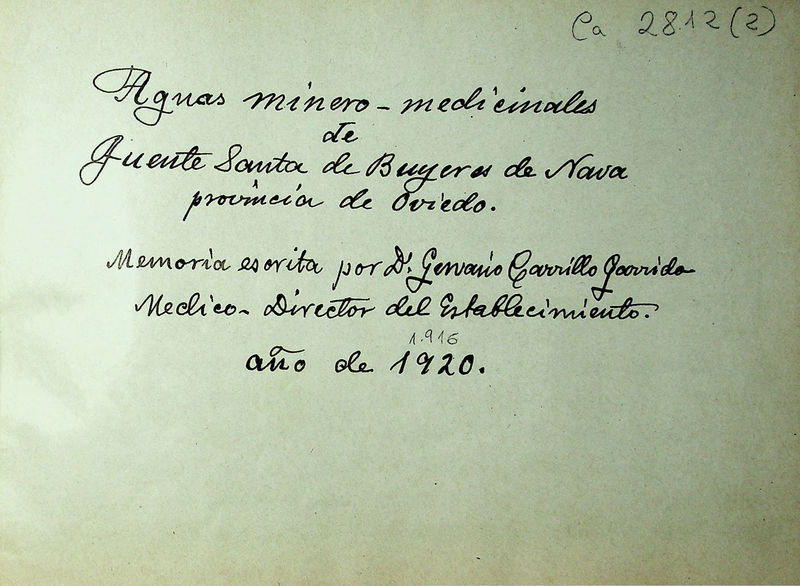 Ca 2812 (2)
Aguas minero-medicinales
de
Fuente Santa de Buyeres de Nava
provincia de Oviedo.
Memoria escrita por D. Gervasio Carrillo Garrido
Medico-Director del Establecimiento.
1.916
año de 1920.